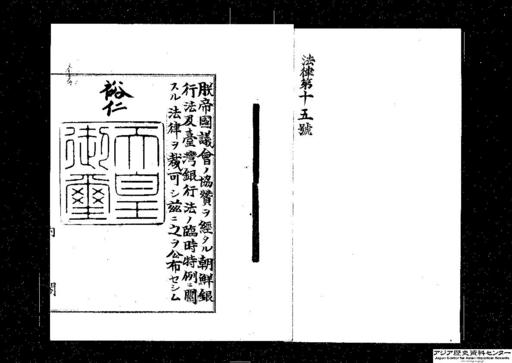 法律第十五號
朕帝國議會ノ協贊ヲ經タル朝鮮銀
行法及臺灣銀行法ノ臨時特例ニ關
スル法律ヲ裁可シ茲ニ之ヲ公布セシム
裕仁
天皇
御璽
内
閣
アジア歴史資料センター
Japan Center for Asian Historical Records